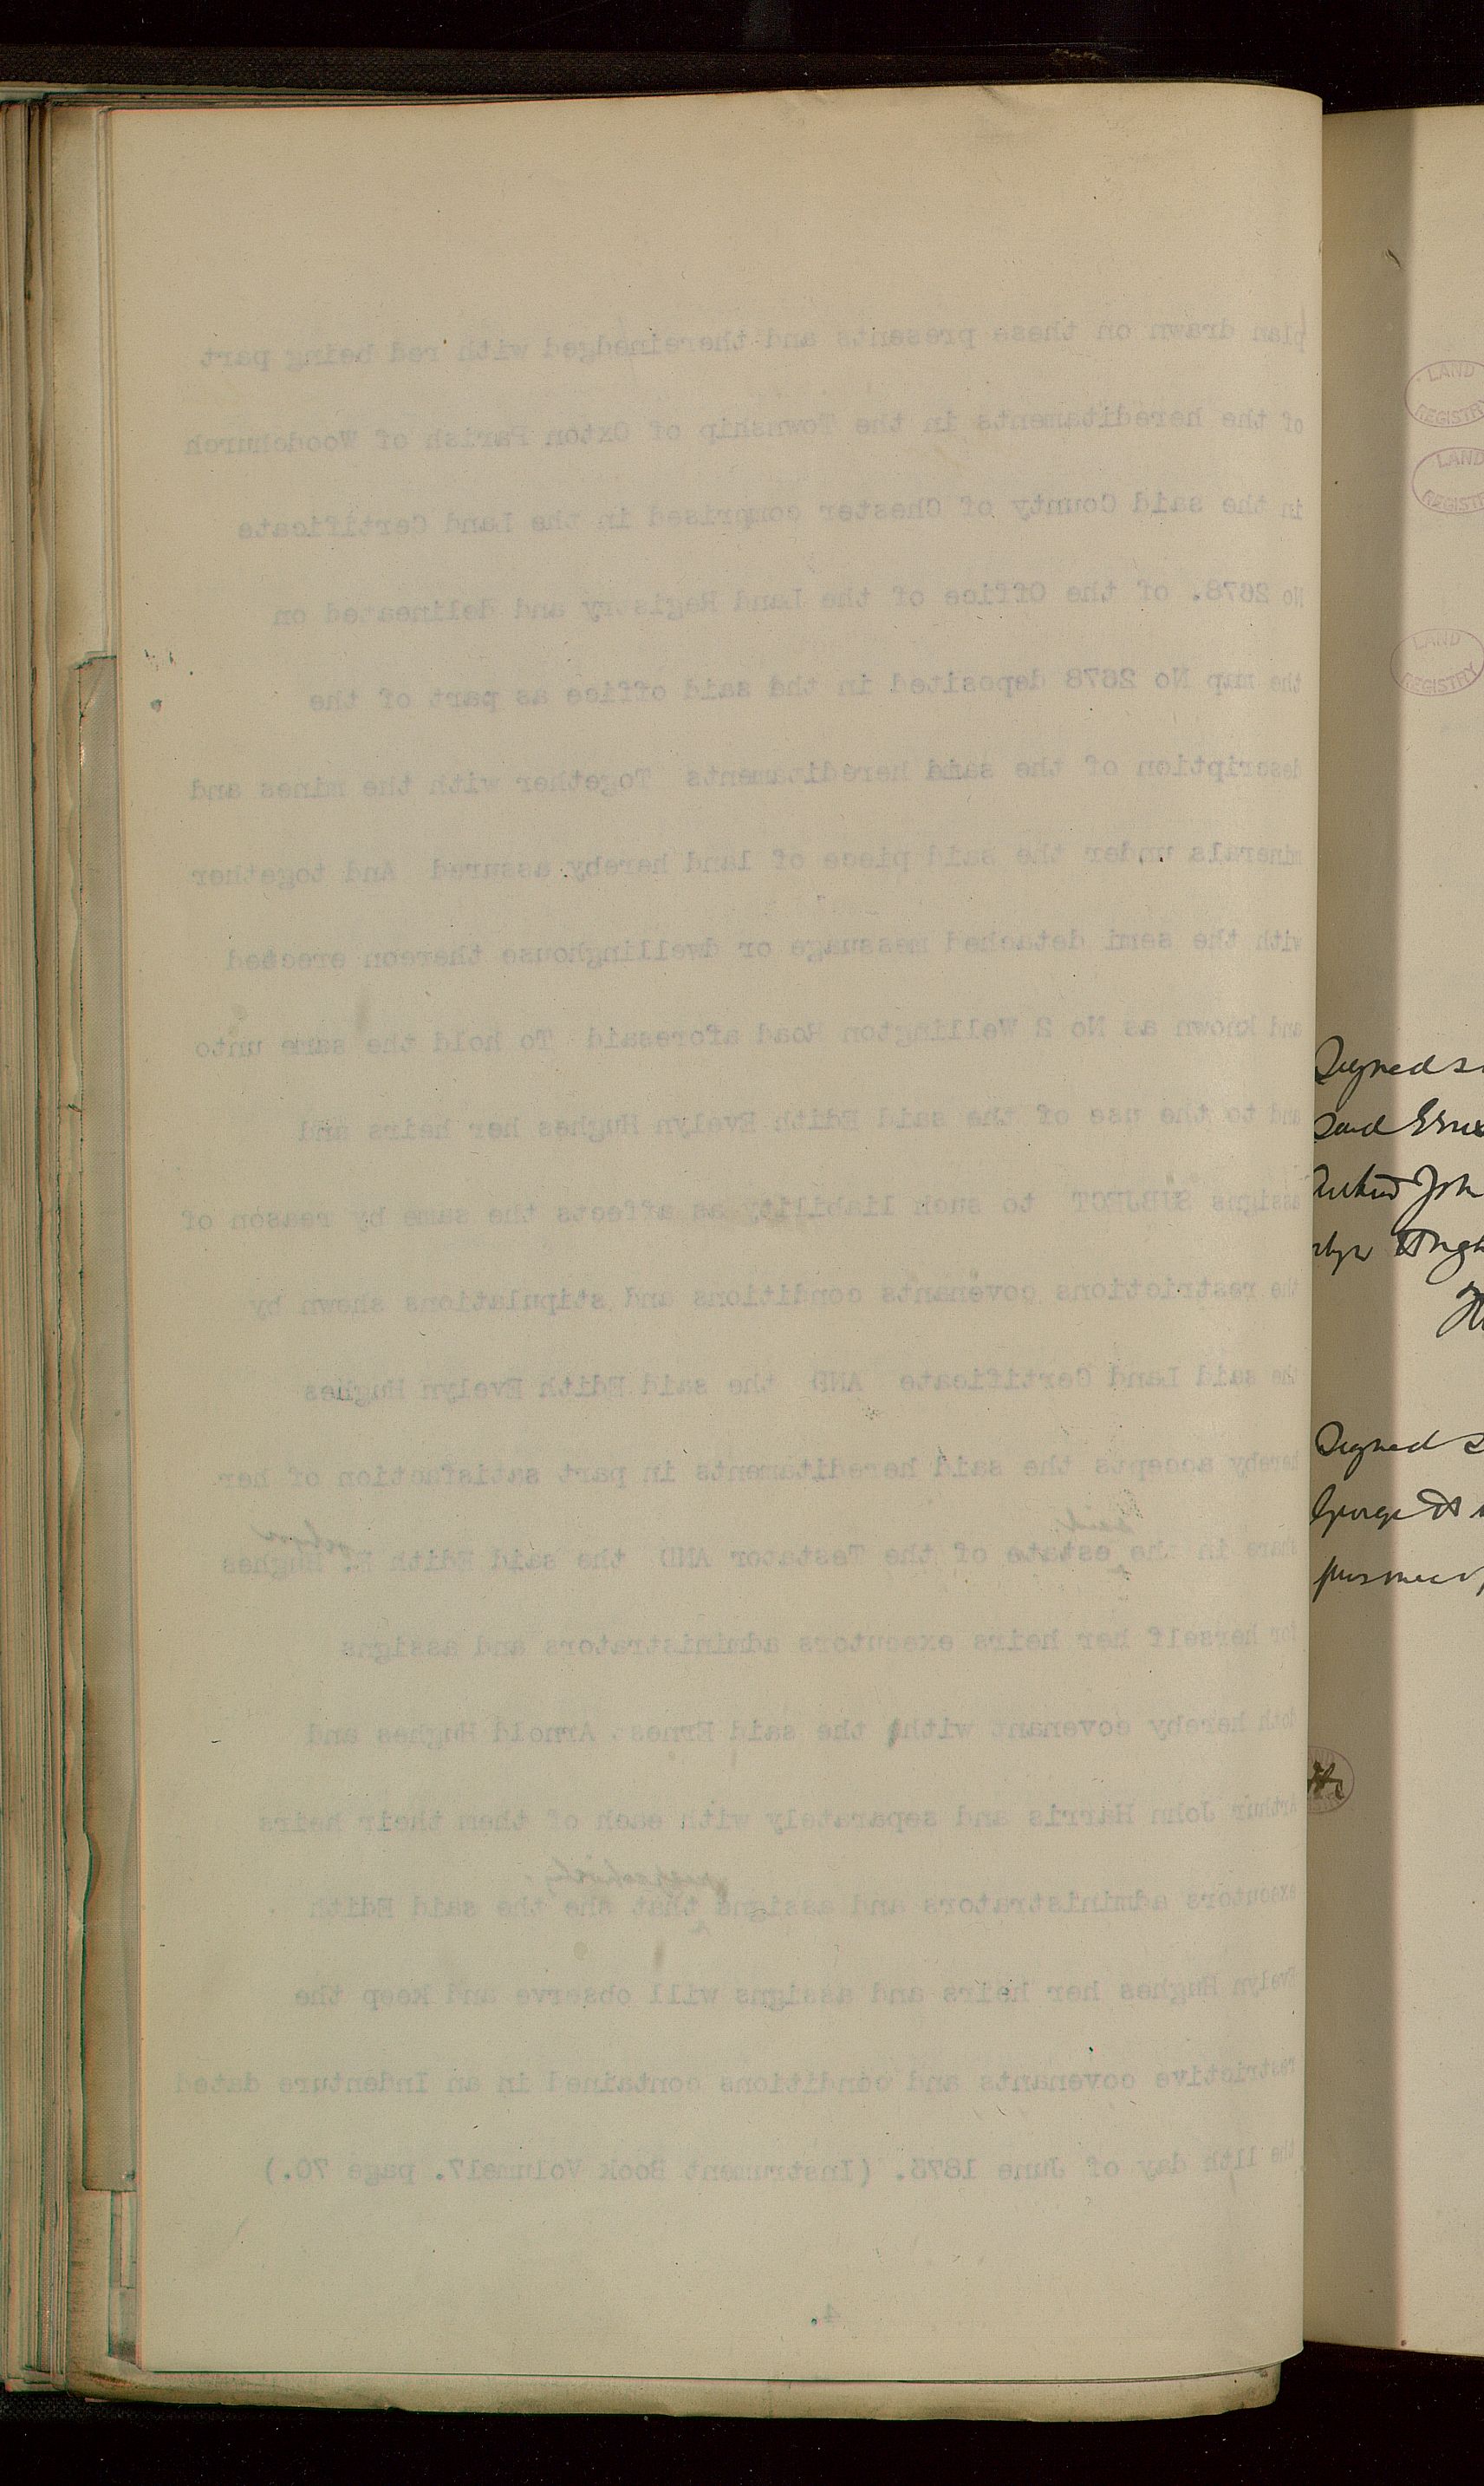 plan drawn on these presents and therein edged with red being part
of the hereditaments in the Township of Oxton Parish of Woodchurch
in the said County of Chester comprised in the Land Certificate
No 2678. of the Office of the Land Registry and delineated on
the map No 2678 deposited in the said office as part of the
description of the said hereditaments Together with the mines and
minerals under the said piece of land hereby assured And together
with the semi detached messuage or dwellinghouse thereon erected
and known as No 2 Wellington Road aforesaid To hold the same unto
and to the use of the said Edith Evelyn Hughes her heirs and
assigns SUBJECT to such liability as affects the same by reason of
the restrictions covenants conditions and stipulations shewn by
the said Land Certificate AND the said Edith Evelyn Hughes
hereby accepts the said hereditaments in part satisfaction of her
said
share in the estate of the Testator AND the said Edith E. Hughes
for herself her heirs executors administrators and assigns
doth hereby covenant with the said Ernest Arnold Hughes and
Arthur John Harris and separately with each of them their heirs
respectively
executors administrators and assigns that she the said Edith
Evelyn Hughes her heirs and assigns will observe and keep the
restrictive covenants and conditions contained in an Indenture dated
the 11th day of June 1873. (Instrument Book Volume17. page 70.)
4.
LAND
REGISTRY
LAND
REGISTRY
LAND
REGISTRY
Signed
said
John
Signed
George